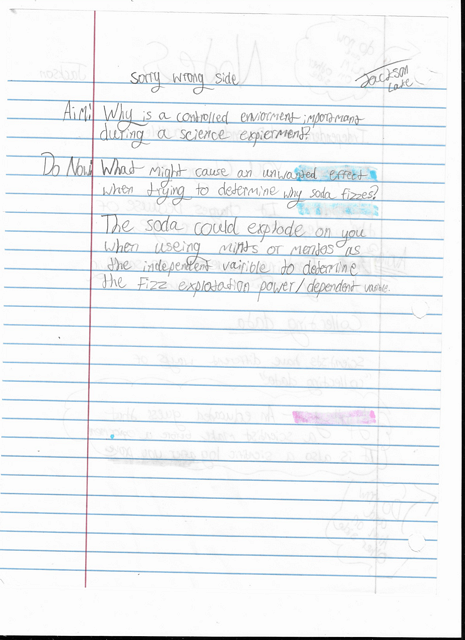 sorry wrong side
Jackson
Aim: Why is a controlled enviorment important
during a science expierment?
Do Now: What might cause an unwanted effect
when trying to determine why soda fizzes?
The soda could explode on you
when useing mints or mentos as
the independent vairible to determine
the fizz explotation power/dependent varible.